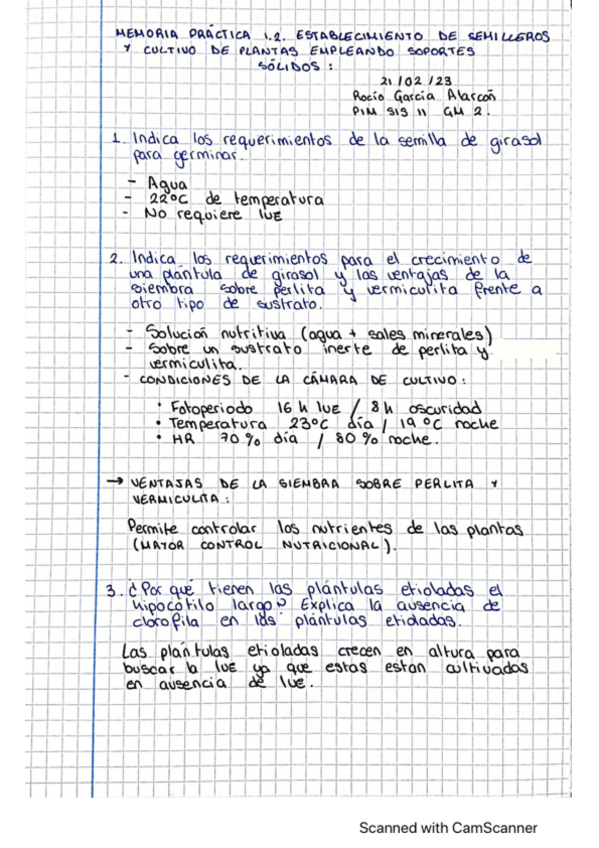 MEMORIA PRÁCTICA 1.2. ESTABLECIMIENTO DE SEMILLEROS
Y CULTIVO DE PLANTAS EMPLEANDO SOPORTES
SÓLIDOS :
21/02/23
Rocío García Alarcón
PIM SIS 11 GM 2.
1. Indica los requerimientos de la semilla de girasol
para germinar.
- Agua
- 22ºC de temperatura
- No requiere luz
2. Indica los requerimientos para el crecimiento de
una plántula de girasol y las ventajas de la
siembra sobre perlita y vermiculita frente a
otro tipo de sustrato.
- Solución nutritiva (agua + sales minerales)
- Sobre un sustrato inerte de perlita y
vermiculita.
- CONDICIONES DE LA CÁMARA DE CULTIVO :
• Fotoperiodo 16 h luz / 8 h oscuridad
• Temperatura 23ºC día / 19 ºC noche
• HR 70 % día / 80 % noche.
→ VENTAJAS DE LA SIEMBRA SOBRE PERLITA Y
VERMICULITA :
Permite controlar los nutrientes de las plantas
(MAYOR CONTROL NUTRICIONAL).
3. ¿Por qué tienen las plántulas etioladas el
hipocótilo largo? Explica la ausencia de
clorofila en las plántulas etioladas.
Las plántulas etioladas crecen en altura para
buscar la luz ya que estas estan cultivadas
en ausencia de luz.
Scanned with CamScanner